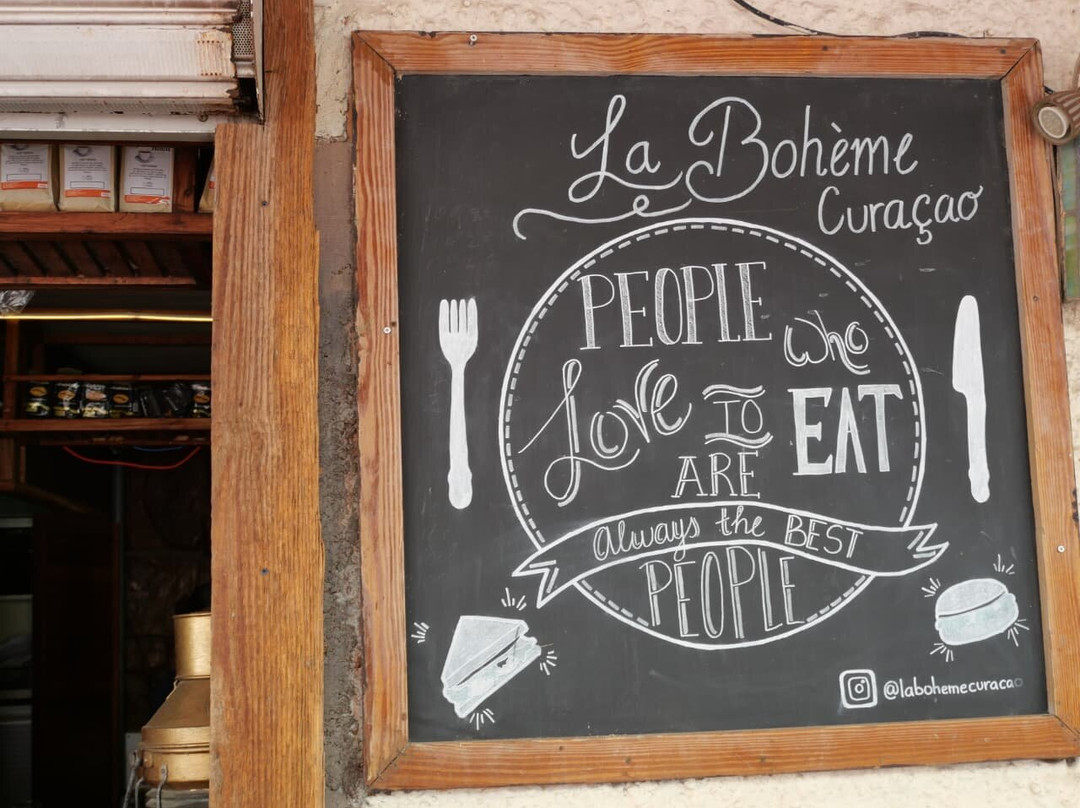 La Bohème
Curaçao
PEOPLE who
Love TO EAT
ARE
always the BEST
PEOPLE
@labohemecuracao